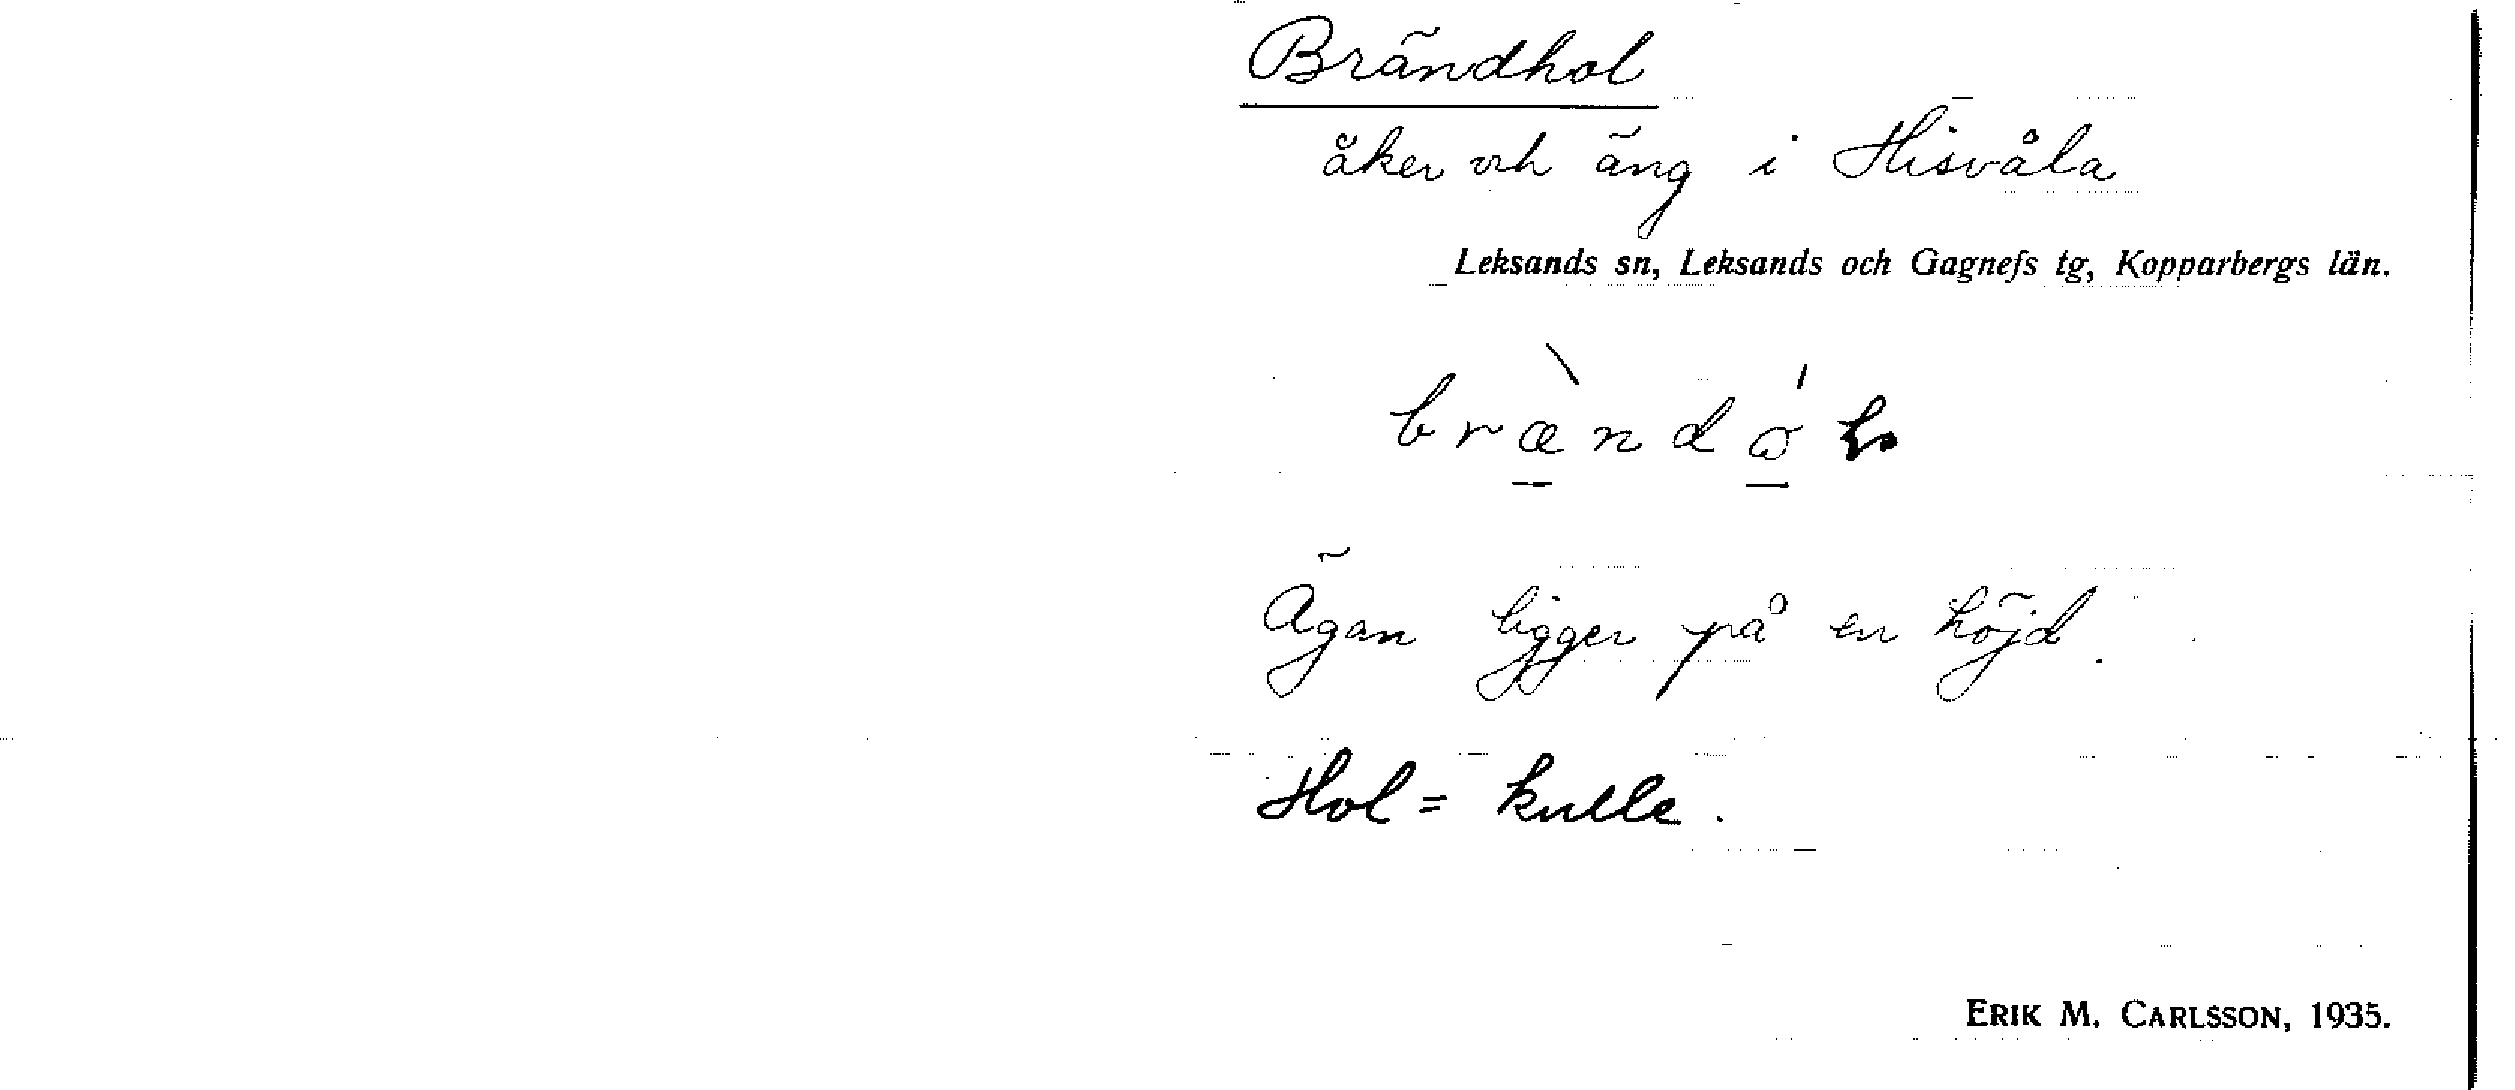 Brändhol
åker och äng i Hisvåla
Leksands sn, Leksands och Gagnefs tg, Kopparbergs län.
Ägan ligger på en höjd.
Hol = kulle.
ERIK M. CARLSSON, 1935.